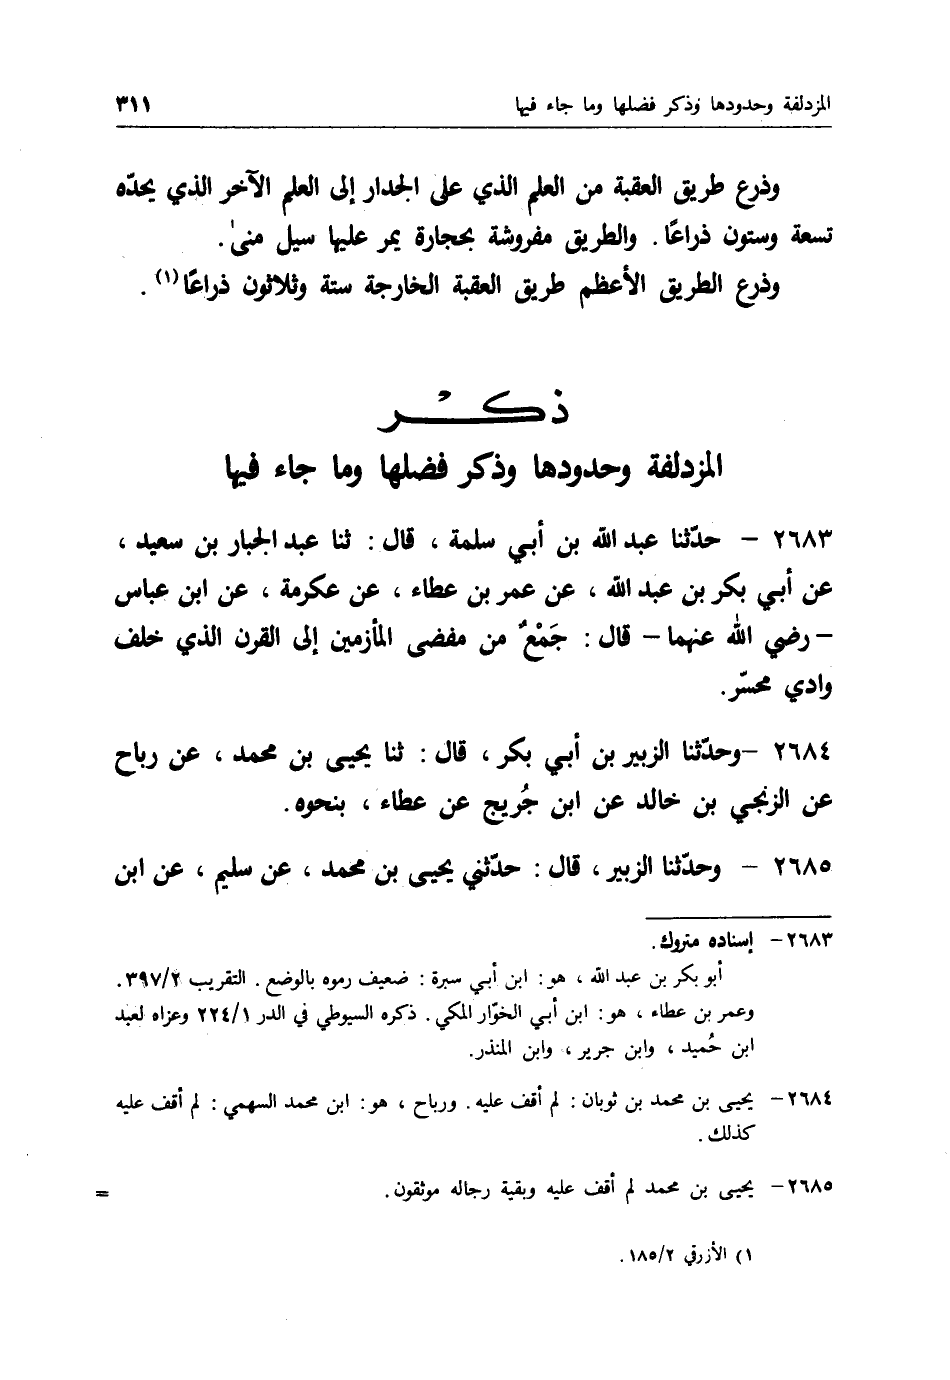 المزدلفة وحدودها وذكر فضلها وما جاء فيها ٣١١
وذرع طريق العقبة من العلم الذي على الجدار إلى العلم الآخر الذي يحدّه
تسعة وستون ذراعًا . والطريق مفروشة بحجارة يمر عليها سيل منىٰ .
وذرع الطريق الأعظم طريق العقبة الخارجة ستة وثلاثون ذراعًا (١) .
ذكر
المزدلفة وحدودها وذكر فضلها وما جاء فيها
٢٦٨٣ - حدّثنا عبد الله بن أبي سلمة ، قال : ثنا عبد الجبار بن سعيد ،
عن أبي بكر بن عبد الله ، عن عمر بن عطاء ، عن عكرمة ، عن ابن عباس
- رضي الله عنهما - قال : جَمْعٌ من مفضى المأزمين إلى القرن الذي خلف
وادي محسّر .
٢٦٨٤ - وحدّثنا الزبير بن أبي بكر ، قال : ثنا يحيى بن محمد ، عن رباح
عن الزنجي بن خالد عن ابن جُريج عن عطاء ، بنحوه .
٢٦٨٥ - وحدّثنا الزبير ، قال : حدّثني يحيى بن محمد ، عن سليم ، عن ابن
٢٦٨٣ - إسناده متروك .
أبو بكر بن عبد الله ، هو : ابن أبي سبرة : ضعيف رموه بالوضع . التقريب ٣٩٧/٢ .
وعمر بن عطاء ، هو : ابن أبي الخوّار المكي . ذكره السيوطي في الدر ٢٢٤/١ وعزاه لعبد
ابن حُميد ، وابن جرير ، وابن المنذر .
٢٦٨٤ - يحيى بن محمد بن ثوبان : لم أقف عليه . ورباح ، هو : ابن محمد السهمي : لم أقف عليه
كذلك .
٢٦٨٥ - يحيى بن محمد لم أقف عليه وبقية رجاله موثقون . =
١) الأزرقي ١٨٥/٢ .